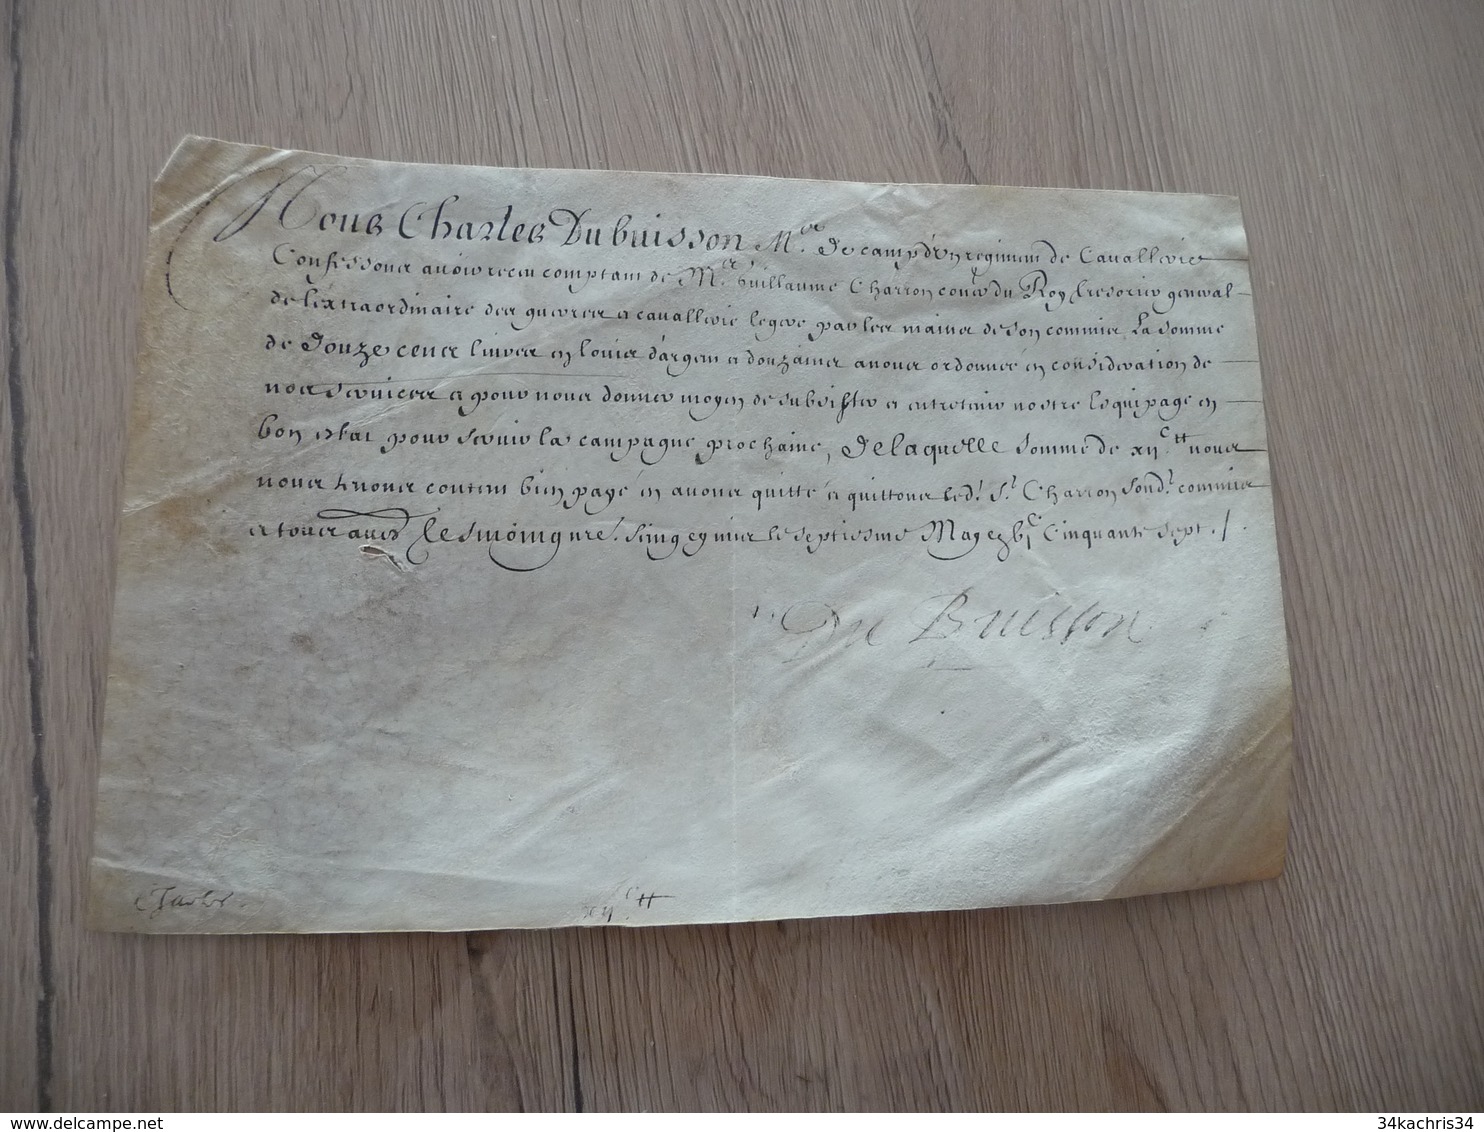 Nous Charles Dubuisson Mre. de camp d'un regiment de Cavallerie
Confessons avoir receu comptant de Mre. Guillaume Charron coner du Roy tresorier general
de l'extraordinaire des guerres et cavallerie legere par les mains de son commis La somme
de Douze cens livres en louis d'argent et douzains a nous ordonnée en consideration de
nos services et pour nous donner moyen de subsister et entretenir nostre lequipage en
bon estat pour servir la campagne prochaine, De laquelle somme de xijc tt nous
nous tenons content bien payé en avons quitté et quittons led. Sr. Charron sond. commis
et tous autres Tesmoing nre. seing cy mis le septiesme May gbjc Cinquante sept ./.
Du Buisson
xijc tt
www.delcampe.net
34kachris34